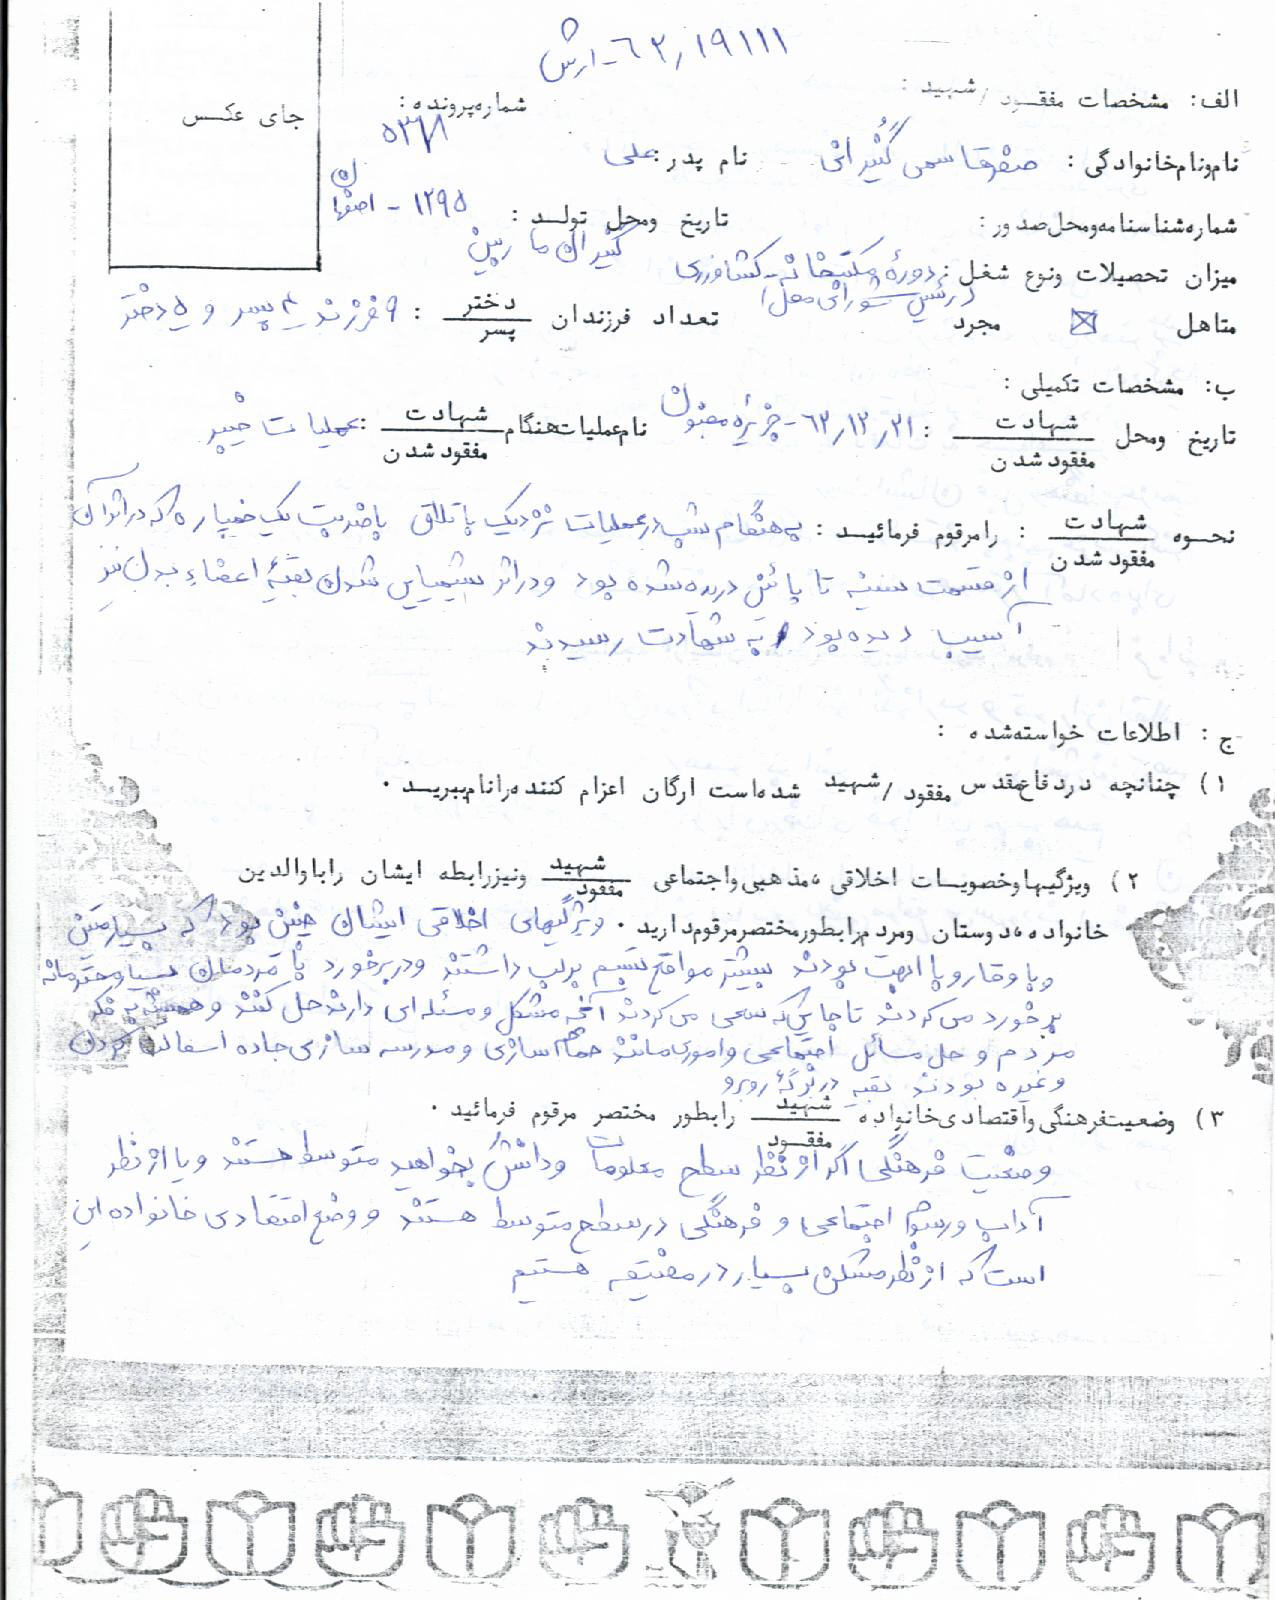 ۶۲٫۱۹۱۱۱ - ارش
الف: مشخصات مفقود / شهید :
شماره پرونده :
جای عکس
نام و نام خانوادگی : صفر قاسمی گنیرانی نام پدر : علی
شماره شناسنامه و محل صدور : تاریخ و محل تولد : ۱۲۹۵ - اصفهان
گنیران ماربین
میزان تحصیلات و نوع شغل : دورهٔ مکتبخانه - کشاورزی
(رئیس شورای محل)
متاهل ☒ مجرد تعداد فرزندان دختر / پسر : ۹ فرزند ۴ پسر و ۵ دختر
ب: مشخصات تکمیلی :
تاریخ و محل شهادت / مفقود شدن : ۶۲٫۱۲٫۲۱ - جزیره مجنون نام عملیات هنگام شهادت / مفقود شدن : عملیات خیبر
نحوه شهادت / مفقود شدن : را مرقوم فرمائید : به هنگام شب در عملیات نزدیک باتلاق با ضربت یک خمپاره که در اثر آن
از قسمت سینه تا پائین دریده شده بود و در اثر شیمیایی شدن بقیهٔ اعضاء بدن نیز
آسیب دیده بود به شهادت رسیدند
ج : اطلاعات خواسته شده :
۱) چنانچه در دفاع مقدس مفقود / شهید شده است ارگان اعزام کننده را نام ببرید .
۲) ویژگیها و خصویسات اخلاقی ، مذهبی و اجتماعی شهید / مفقود و نیز رابطه ایشان را با والدین
خانواده ، دوستان و مردم را بطور مختصر مرقوم دارید . ویژگیهای اخلاقی ایشان چنین بود که بسیار متین
و با وقار و با ابهت بودند بیشتر مواقع تبسم بر لب داشتند و در برخورد با مردمان بسیار محترمانه
برخورد می کردند تا جایی که سعی می کردند آنچه مشکل و مسئله ای دارند حل کنند و همیشه به فکر
مردم و حل مسائل اجتماعی و اموری مانند حمام سازی و مدرسه سازی جاده اسفالت کردن
و غیره بودند بقیه در برگهٔ روبرو
۳) وضعیت فرهنگی و اقتصادی خانواده شهید / مفقود را بطور مختصر مرقوم فرمائید .
وضعیت فرهنگی اگر از نظر سطح معلومات و دانش بخواهید متوسط هستند و یا از نظر
آداب و رسوم اجتماعی و فرهنگی در سطح متوسط هستند و وضع اقتصادی خانواده این
است که از نظر مسکن بسیار در مضیقه هستیم